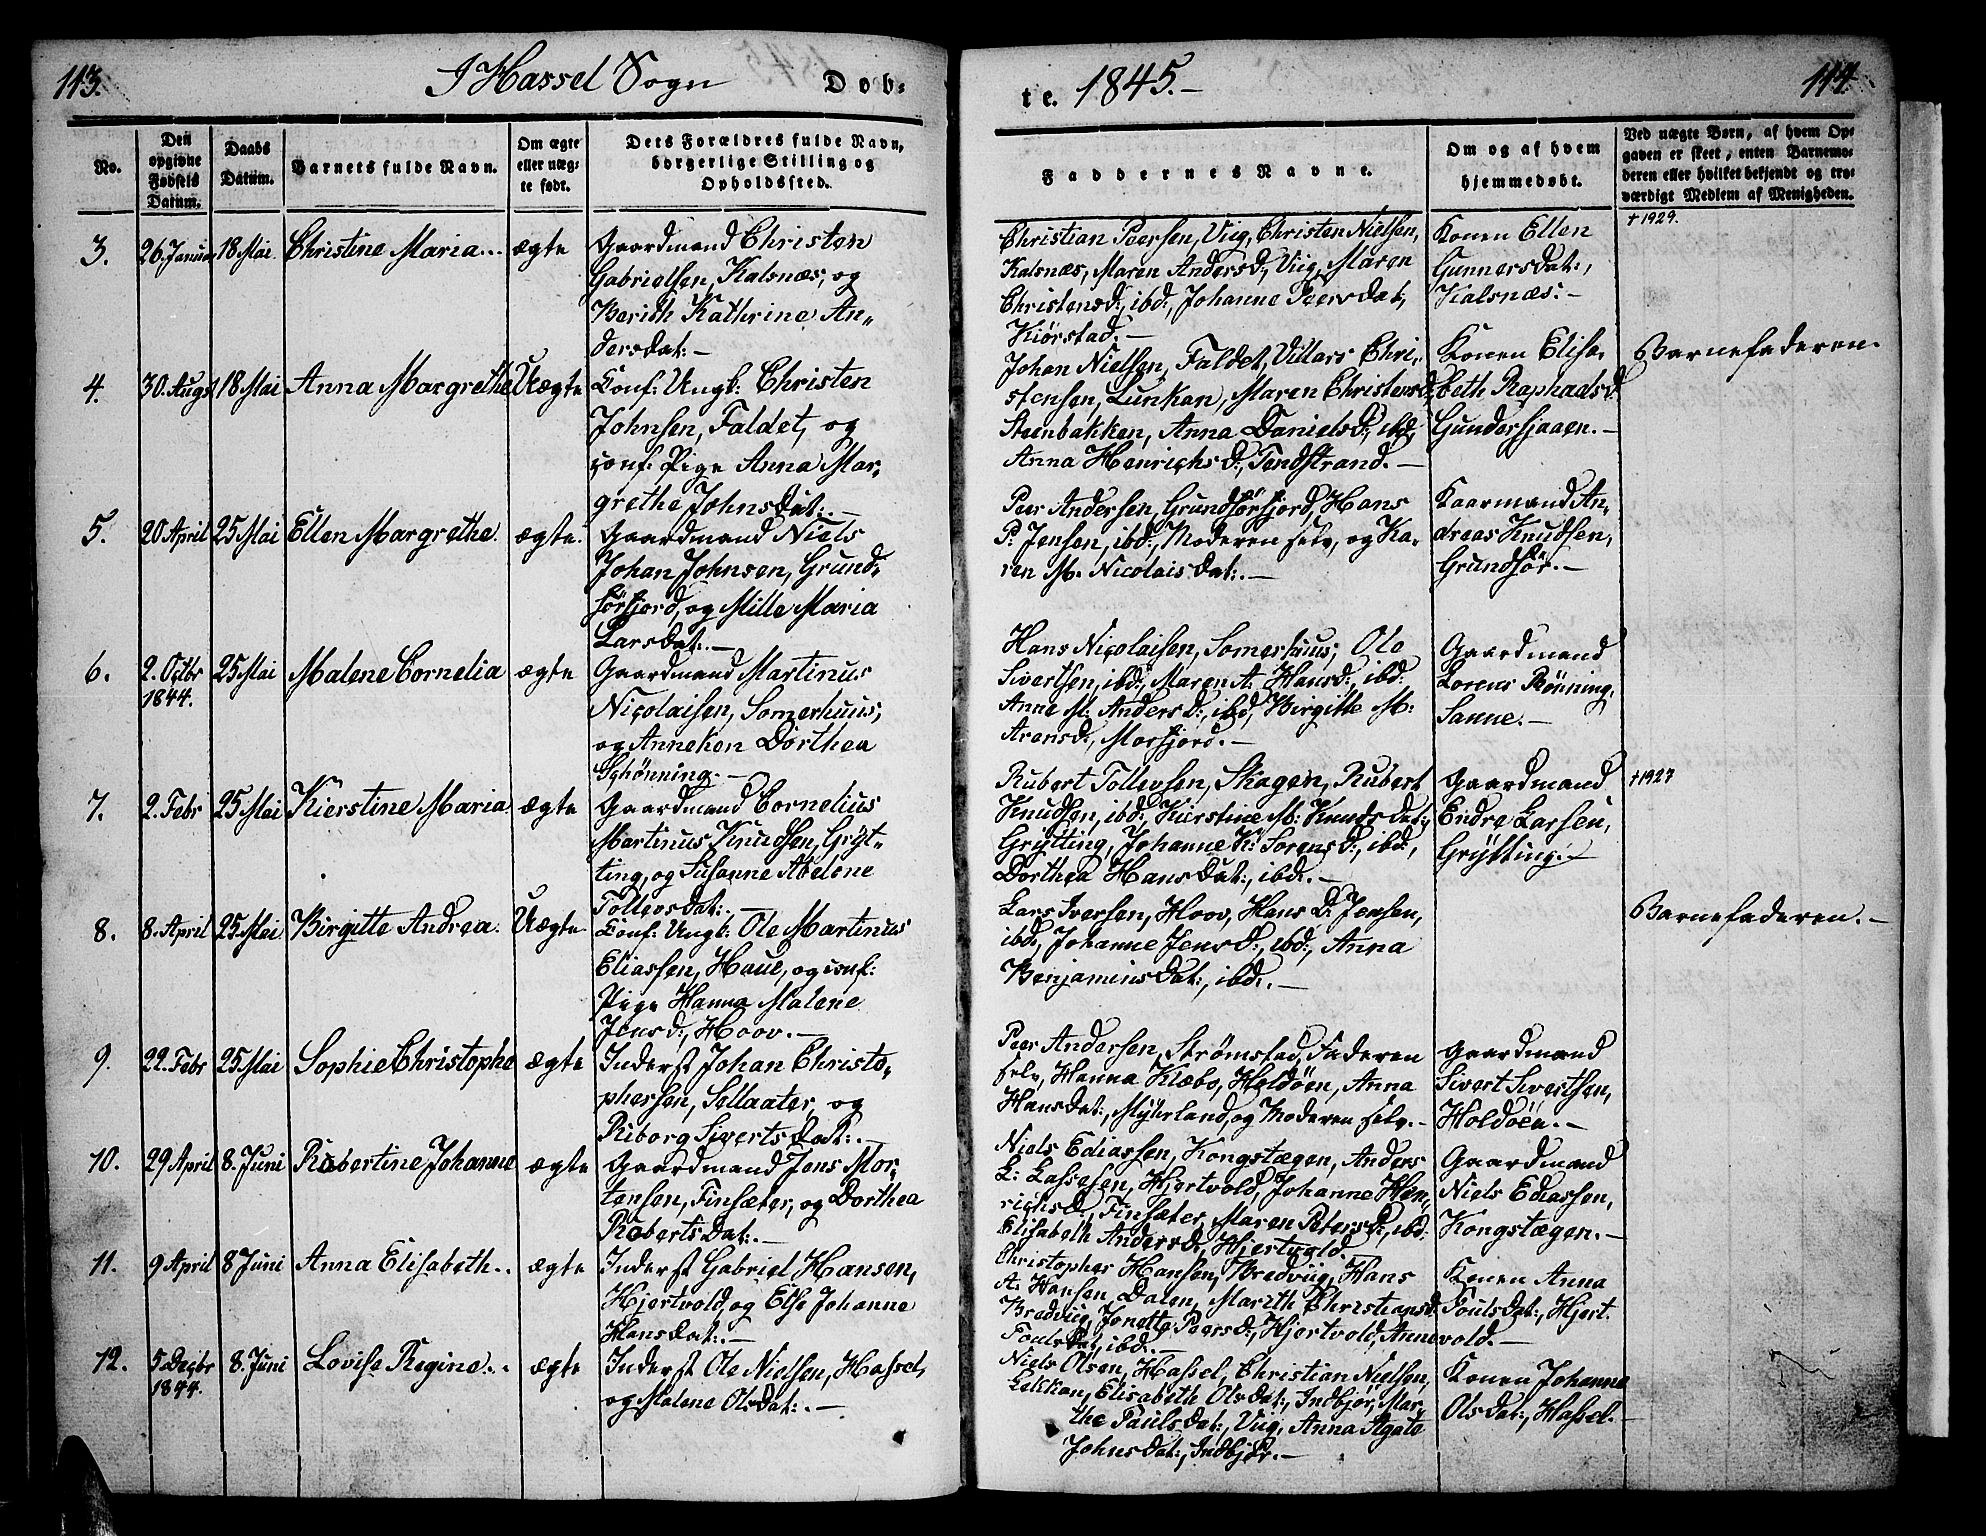 113.
I Hassel Sogn
Dob-
te.
1845.-
114.
No.
Den
opgivne
Fødsels
Datum.
Daabs
Datum.
Barnets fulde Navn.
Om ægte
eller uæg-
te født.
Dets Forældres fulde Navn,
borgerlige Stilling og
Opholdssted.
Faddernes Navne.
Om og af hvem
hjemmedøbt.
Ved uægte Børn, af hvem Op-
gaven er skeet, enten Barnemo-
deren eller hvilket bekjendt og tro-
værdigt Medlem af Menigheden.
3.
26. Januar
18 Mai
Christine Maria..
ægte
Gaardmand Christen
Gabrielsen, Kalsnæs, og
Berith Kathrine An-
dersdat:-
Christian Peersen, Viig, Christen Nielsen,
Kalsnæs, Maren Andersd:, Viig, Maren
Christensd:, ibd:, Johanne Peersdat,
Kiørstad.-
Konen Ellen
Gunnersdat:,
Kalsnæs.-
+ 1929.
4.
30. Augst
18 Mai
Anna Margrethe
Uægte
Conf: Ungk: Christen
Johnsen, Faldet, og
conf: Pige Anna Mar-
grethe Johnsdat:.-
Johan Nielsen, Faldet, Villars Chri-
stensen, Lunkan, Maren Christensd:,
Steenbakken, Anna Danielsd:, ibd,
Anna Henrichsd:, Tendstrand.-
Konen Elisa-
beth Raphaelsd:
Gundersjaaen.-
Barnefaderen.
5.
20 April
25 Mai
Ellen Margrethe.
ægte.
Gaardmand Niels
Johan Johnsen, Grund-
førfjord, og Mille Maria
Larsdat:.-
Peer Andersen, Grundførfjord, Hans
P: Jensen, ibd:, Moderen selv, og Ka-
ren M. Nicolaisdat:.-
Kaarmand An-
dreas Knudsen,
Grundfør.-
6.
2. Octbr
1844.
25 Mai
Malene Cornelia
ægte
Gaardmand Martinus
Nicolaisen, Somerhuus,
og Anneken Dorthea
Schønning.-
Hans Nicolaisen, Somerhuus, Ole
Sivertsen, ibd:, Maren A: Hansd:, ibd:
Anne M: Andersd:, ibd, Birgitte M:
Arensd:, Morfjord.-
Gaardmand
Lorens Rønning,
Sanne.-
7.
2. Febr
25 Mai
Kierstine Maria
ægte
Gaardmand Cornelius
Martinus Knudsen, Gryt-
ting, og Susanne Abelone
Tollevsdat:.-
Rubert Tollevsen, Skagen, Rubert
Knudsen, ibd:, Kierstine M: Knudsdat:,
Grytting, Johanne K: Sorensd:, ibd:,
Dorthea Hansdat:, ibd:.-
Gaardmand
Endre Larsen,
Grytting.-
+1927
8.
8. April
25. Mai
Birgitte Andrea.
Uægte
Conf: Ungk: Ole Martinus
Eliassen, Haue, og conf:
Pige Hanna Malene
Jensd:, Hoov.-
Lars Iversen, Hoov, Hans D. Jensen,
ibd:, Johanne Jensd:, ibd:, Anna
Benjaminsdat:, ibd:.-
Barnefaderen.-
9.
22. Febr
25 Mai
Sophie Christophe
ægte
Inderst Johan Christo-
phersen, Sellaater, og
Riborg Sivertsdat:.-
Peer Andersen, Strømstad, Faderen
selv, Hanna Klæbo, Holdøen, Anna
Hansdat:, Myhrland, og Moderen selv.-
Gaardmand
Sivert Sivertsen,
Holdøen.-
10.
29 April
8. Juni
Robertine Johanne
ægte
Gaardmand Jens Mor-
tensen, Finsæter, og Dorthea
Robertsdat:.-
Niels Ediassen, Kongstægen, Anders
L: Lassesen, Hjertvold, Johanne Hen-
richsd:, Finsæter, Maren Petersd:, ibd:
Elisabeth Andersd:, Hjertvold.-
Gaardmand
Niels Ediassen,
Kongstægen.-
11.
9 April
8 Juni
Anna Elisabeth..
ægte
Inderst Gabriel Hansen,
Hjertvold, og Else Johanne
Hansdat:.-
Christopher Hansen, Bredviig, Hans
A: Hansen, Dalen, Marith Christiansd:
Bredviig, Jonette Peersd:, Hjertvold, Anne
Foulsdat, ibd:.-
Konen Anna
Foulsdat:, Hjert-
vold.-
12.
5. Decbr
1844.
8. Juni
Lovise Regine..
ægte
Inderst Ole Nielsen, Hassel,
og Malene Olsdat:.-
Niels Olsen, Hassel, Christian Nielsen,
Lekkan, Elisabeth Olsdat:, Indbjør, Mar-
the Paulsdat:, Viig, Anna Agate
Johnsdat:, Indbjør.-
Konen Johanne
Olsdat:, Hassel.-